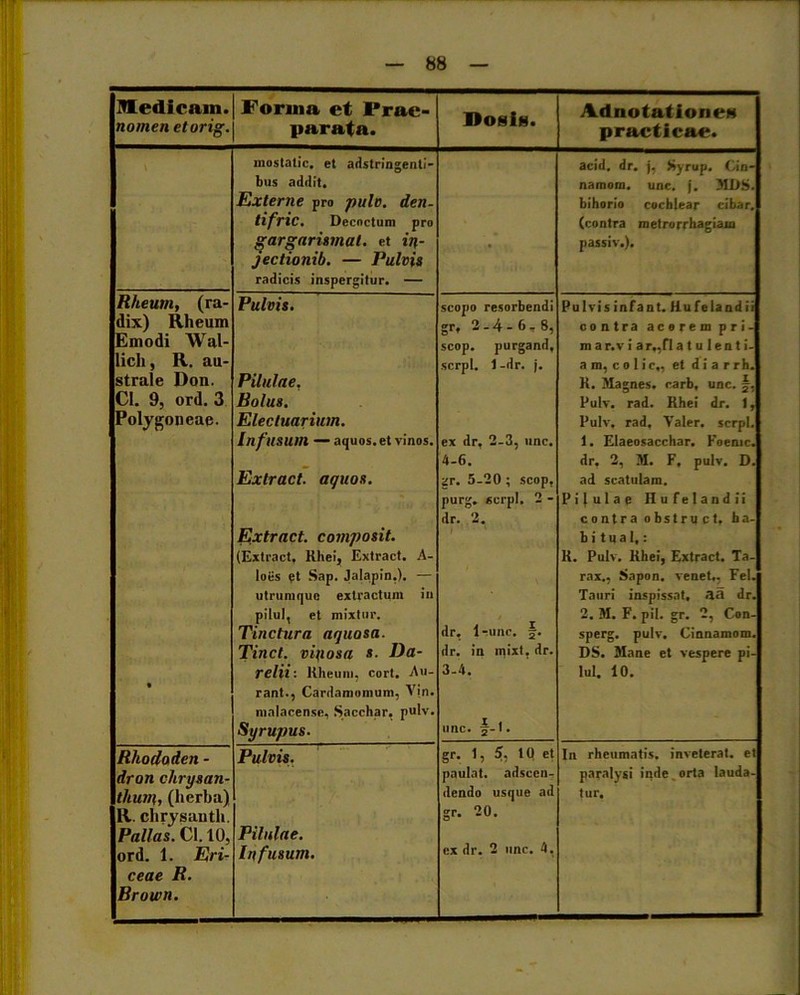 — 88 —
Medicam.
nomen et orig.
Forma et Prae-
parata.
Dosis.
Adnotationes
practicae.
mostatic, et adstringenti-
bus addit.
Externe pro pulv. den-
tifric. Decoctum pro
gargarismat. et in-
jectionib. — Pulvis
radicis inspergitur. —
acid. dr. j, Syrup. Cin-
namom. unc. j. MDS.
bihorio cochlear cibar.
(contra metrorrhagiam
passiv.).
Rheum, (ra-
dix) Rheum
Emodi Wal-
lich, R. au-
strale Don.
Cl. 9, ord. 3
Polygoneae.
Pulvis.
Pilulae.
Bolus.
Electuarium.
Infusum — aquos. et vinos.
Extract. aquos.
Extract. composit.
(Extract, Rhei, Extract. A-
loës et Sap. Jalapin.). —
utrumque extractum in
pilul, et mixtur.
Tinctura aquosa.
Tinct. vinosa s. Da-
relii: Rheum, cort. Au-
rant., Cardamomum, Vin.
malacense, Sacchar. pulv.
Syrupus.
scopo resorbendi
gr, 2-4-6-8,
scop. purgand,
scrpl. 1-dr. j.
ex dr, 2-3, unc.
4-6.
gr. 5-20; scop,
purg. scrpl. 2-
dr. 2.
dr. 1-unc. ½.
dr. in mixt, dr.
3-4.
unc. ½-1.
Pulvis infant. Hufelandii
contra acorem pri-
mar. viar., flatulenti-
am, colic., et diarrh.
R. Magnes. carb, unc. ½,
Pulv. rad. Rhei dr. 1,
Pulv, rad, Valer. scrpl.
1. Elaeosacchar. Foenic.
dr, 2, M. F, pulv. D.
ad scatulam.
Pilulae Hufelandii
contra obstruct, ha-
bitual,:
R. Pulv. Rhei, Extract. Ta-
rax., Sapon. venet., Fel.
Tauri inspissat, aā dr.
2. M. F. pil. gr. 2, Con-
sperg. pulv. Cinnamom.
DS. Mane et vespere pi-
lul. 10.
Rhododen-
dron chrysan-
thum, (herba)
R. chrysanth.
Pallas. Cl. 10,
ord. 1. Eri-
ceae R.
Brown.
Pulvis.
Pilulae.
Infusum.
gr. 1, 5, 10 et
paulat. adscen-
dendo usque ad
gr. 20.
ex dr. 2 unc. 4.
In rheumatis. inveterat. et
paralysi inde orta lauda-
tur.